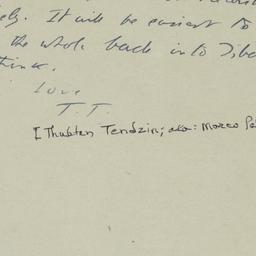 It will be easiest to
the whole back into
think.
Love
T. T.
[Thubten Tendzin; aka: Marco